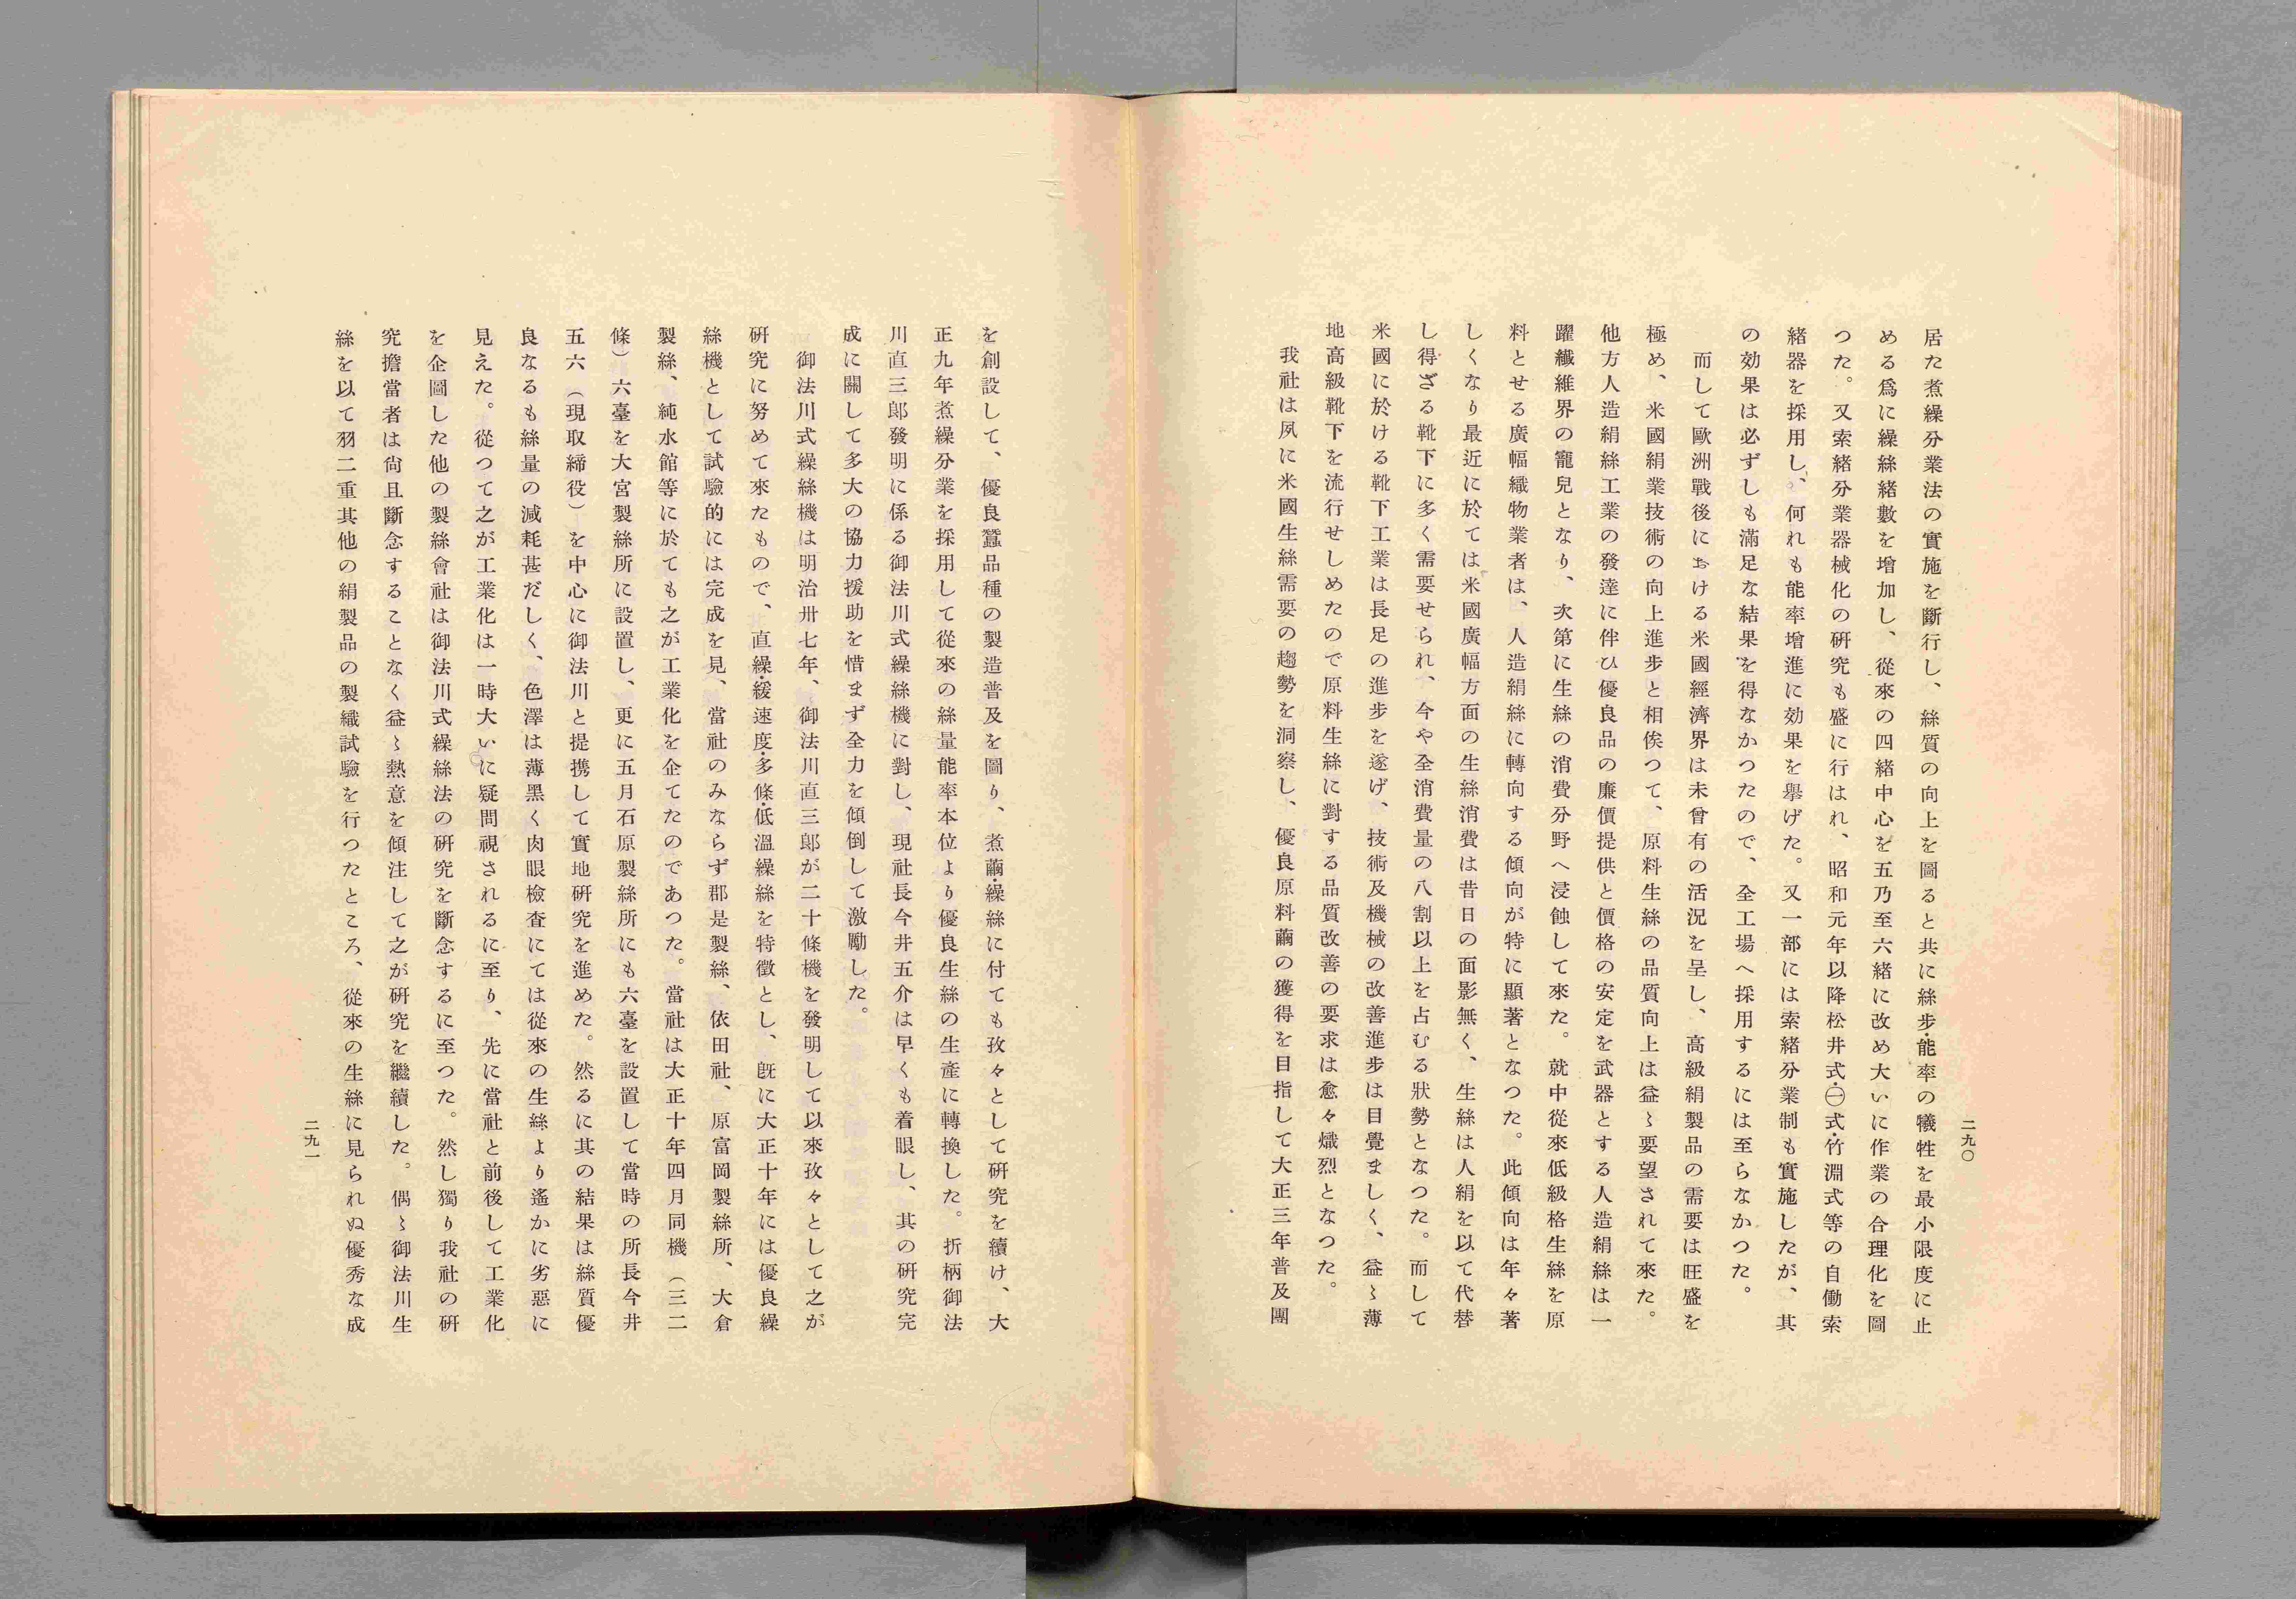 二九〇
居た煮繰分業法の實施を斷行し、絲質の向上を圖ると共に絲步・能率の犠牲を最小限度に止
める爲に繰絲緒數を增加し、從來の四緒中心を五乃至六緒に改め大いに作業の合理化を圖
つた。又索緒分業器械化の研究も盛に行はれ、昭和元年以降松井式・㊀式・竹淵式等の自働索
緒器を採用し、何れも能率增進に効果を擧げた。又一部には索緒分業制も實施したが、其
の効果は必ずしも滿足な結果を得なかつたので、全工場へ採用するには至らなかつた。
而して歐洲戰後における米國經濟界は未曾有の活況を呈し、高級絹製品の需要は旺盛を
極め、米國絹業技術の向上進步と相俟つて、原料生絲の品質向上は益〻要望されて來た。
他方人造絹絲工業の發達に伴ひ優良品の廉價提供と價格の安定を武器とする人造絹絲は一
躍纖維界の寵兒となり、次第に生絲の消費分野へ浸蝕して來た。就中從來低級格生絲を原
料とせる廣幅織物業者は、人造絹絲に轉向する傾向が特に顯著となつた。此傾向は年々著
しくなり最近に於ては米國廣幅方面の生絲消費は昔日の面影無く、生絲は人絹を以て代替
し得ざる靴下に多く需要せられ、今や全消費量の八割以上を占むる狀勢となつた。而して
米國に於ける靴下工業は長足の進步を遂げ、技術及機械の改善進步は目覺ましく、益〻薄
地高級靴下を流行せしめたので原料生絲に對する品質改善の要求は愈々熾烈となつた。
我社は夙に米國生絲需要の趨勢を洞察し、優良原料繭の獲得を目指して大正三年普及團
を創設して、優良蠶品種の製造普及を圖り、煮繭・繰絲に付ても孜々として研究を續け、大
正九年煮繰分業を採用して從來の絲量能率本位より優良生絲の生產に轉換した。折柄御法
川直三郞發明に係る御法川式繰絲機に對し、現社長今井五介は早くも着眼し、其の研究完
成に關して多大の協力援助を惜まず全力を傾倒して激勵した。
御法川式繰絲機は明治卅七年、御法川直三郞が二十條機を發明して以來孜々として之が
研究に努めて來たもので、直繰・緩速度・多條・低溫繰絲を特徵とし、旣に大正十年には優良繰
絲機として試驗的には完成を見、當社のみならず郡是製絲、依田社、原富岡製絲所、大倉
製絲、純水館等に於ても之が工業化を企てたのであつた。當社は大正十年四月同機（三二
條）六臺を大宮製絲所に設置し、更に五月石原製絲所にも六臺を設置して當時の所長今井
五六（現取締役）を中心に御法川と提携して實地研究を進めた。然るに其の結果は絲質優
良なるも絲量の減耗甚だしく、色澤は薄黑く肉眼檢査にては從來の生絲より遙かに劣惡に
見えた。從つて之が工業化は一時大いに疑問視されるに至り、先に當社と前後して工業化
を企圖した他の製絲會社は御法川式繰絲法の研究を斷念するに至つた。然し獨り我社の研
究擔當者は尙且斷念することなく益〻熱意を傾注して之が研究を繼續した。偶〻御法川生
絲を以て羽二重其他の絹製品の製織試驗を行つたところ、從來の生絲に見られぬ優秀な成
二九一